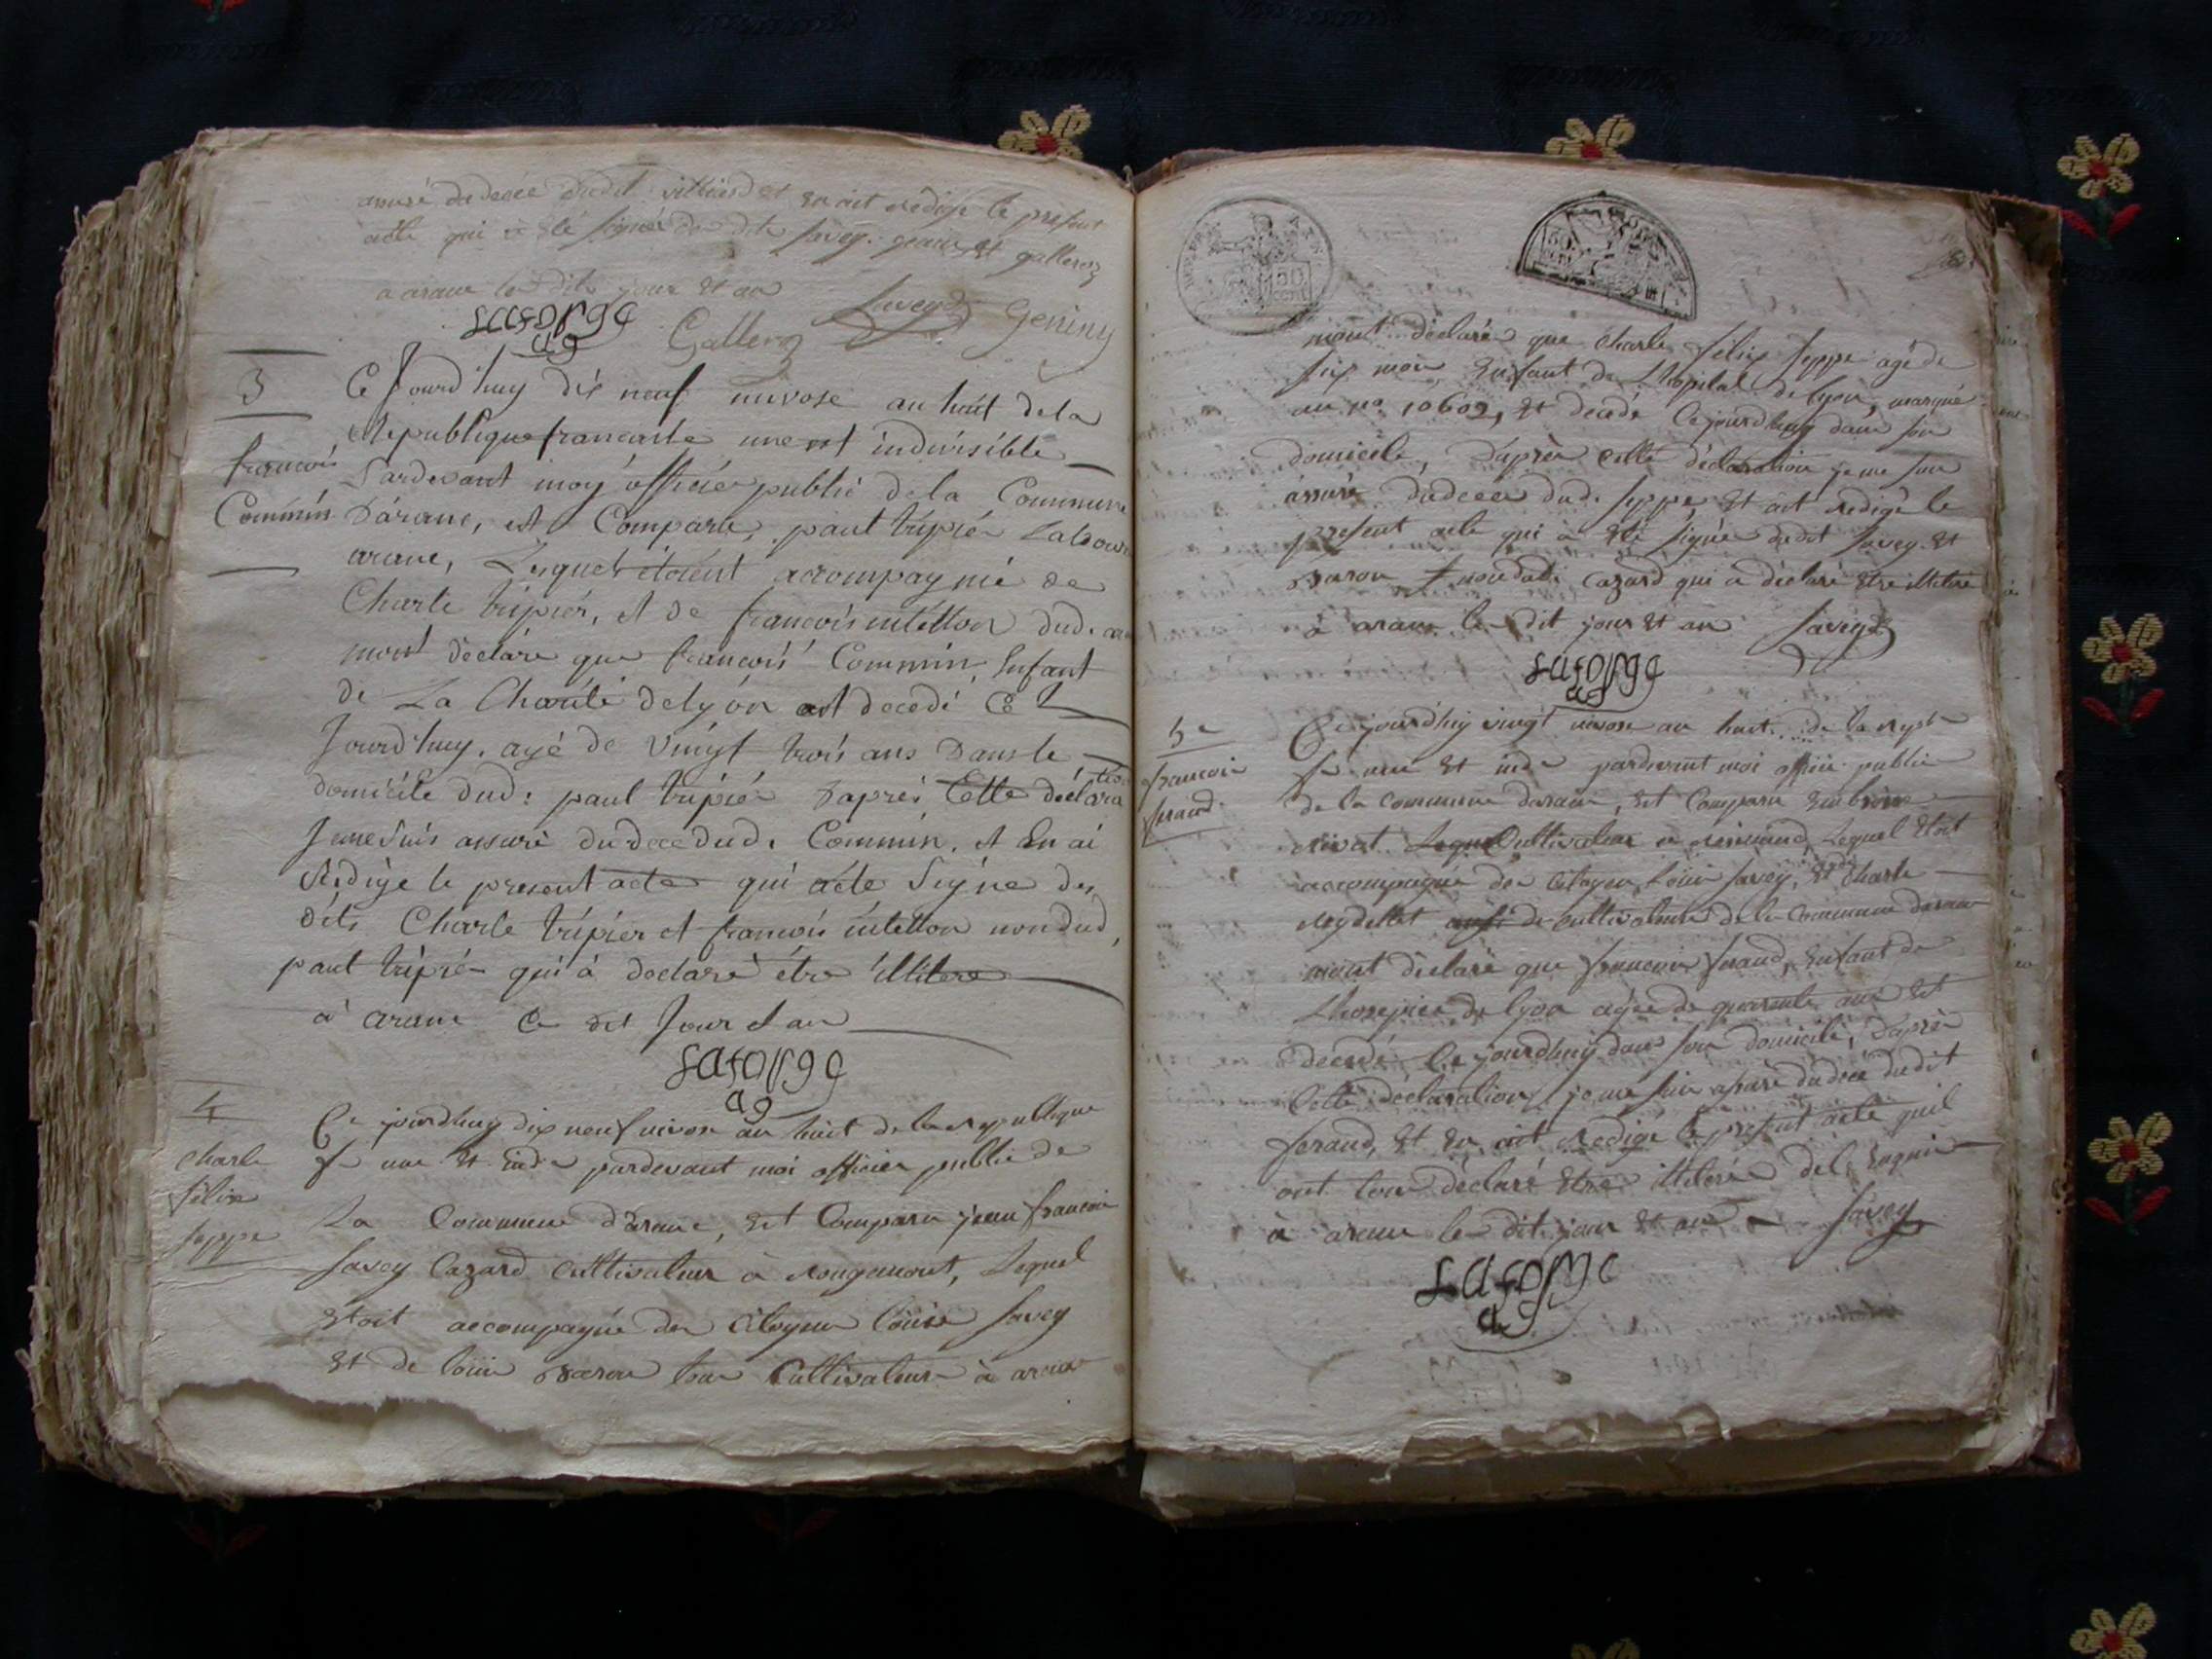 assuré du decée dudit et en ait redigé le present
acte qui a eté signé de dits savey. geniny et galleroz
a arane les dits jour et an
Saveys Geniny
Galleroz
Laforge
ag
3
françois
Commin
Ce Jourd'huy dix neuf nivose an huit dela
Republique francaise une et indivisible
Pardevant moy officier public dela Commune
D'arane, est Comparu, paul tripier Laboure
arane, Lesquels étoient accompagnié de
Charle tripier, et de francois intellon dud. ara
mont déclaré que francois Commin, Enfant
de La Charité delyon est decedé Ce
Jourd'huy. agé de vingt trois ans dans le
domicile dud: paul tripier Daprés Cette déclara
tion
Jemesuis assuré dudecedud. Commin. et En ai
Redigé le present acte qui aété Signé des
dits Charle tripier et francois intellon nondud,
paul tripier qui à declaré être illitere
à arane Ce dit Jour et an
Laforge
ag
4
charle
félix
seppe
Ce jourdhuy dix neuf nivose an huit de la republique
fse une et inde pardevant moi officier public de
La Commune d'arane, est Comparu jean francois
savey Cazard Cultivateur à rougemont, Lequel
Etoit accompagné des Citoyens Louis savey
et de louis Baron tous Cultivateurs à arane
mont declaré que charle félix seppe agé de
six mois Enfant de Lhopital de lyon, marqué
au no 10602, et decedé Cejourdhuy dans son
domicile, d'après cette déclaration je me suis
assuré dudecee dud. seppe, et ait redigé le
present acte qui à eté signée dudit savey et
Baron, et nondudi Cazard qui a déclaré etre illitere
à arane le dit jour et an Saveys
Laforge
ag
5e
francois
feraud
Ce jourd'huy vingt nivose an huit de la repbe
fse une et inde pardevant moi officie public
de la commune darane, est Comparu
Cultivateur a Lequel Etoit
accompagné des Citoyens Louis savey, et Charle
Reydellet cultivateurs de la Commune darane
mont déclaré que francois feraud, Enfant de
Lhospice de lyon agée de quarante ans est
decedé Cejourdhuy dans son domicile, D'après
Cette déclaration, je me suis assuré dudecé dudit
feraud, et en ait redigé le present acte quil
ont tous déclaré etre illiteré de ce enquis
à arane le dit jour et an savey
Laforge
ag